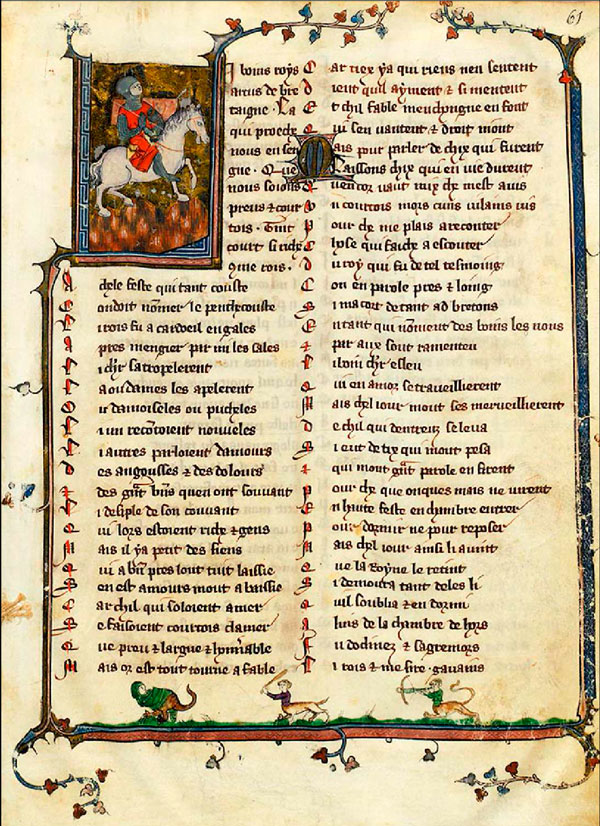 61
I bouis roys
artus de bre
taigne. La
qui proeche
nous ensen
gne. Que
nous soions
preus & cour
tois. Tint
court si riche
9me rois.
A chele feste qui tant couste
C ondoit nõmer le penthecouste
L i rois fu a cardoeil en gales
A pres mengier par mi les sales
L i chr satropelerent
L a ou dames les apelerent
O u damoiseles ou pucheles
L i un recõtoient nouveles
L i autres parloient damours
D es angousses & des dolours
& des gñs biẽs quen ont souvant
L i desiple de son couvant
Q ui lors estoient riche & gens
M ais il ya petit des siens
Q ui a biẽ pres lont tuit laissie
S en est amours mout abaissie
C ar chil qui soloient amer
S e faisoient courtois clamer
Q ue preu & largue & hounerable
M ais or est tout tourne a fable
C ar tiex ya qui riens nen sentent
D ient quil ayment & si mentent
E t chil fable menchongne en font
Q ui sen vantent & droit niont
M ais pour parler de chix qui furent
L aissons chix qui en vie durent
Q uencor vaut mix che mest avis
U n courtois mors cuns vilains vis
P our che me plais a reconter
C hose qui faiche a escouter
D u roy qui fu de tel tesmoing
C on en parole pres & loing
S i macort de tant as bretons
E n tant qui nõment des bouis les nous
& par aux sont ramenteu
L i boin chr esleu
Q ui en amor se travellierent
M ais chel jour mout ses merveillierent
D e chil qui dentreux se leva
S i eut de tix qui mont pesa
& qui mont grãt parole en firent
P our che que onques mais ne virent
E n haute feste en chambre entrer
P our dormir ne pour reposer
M ais chel jour ainsi li avint
Q ue la royne le retint
S i demoura tant deles li
Q uil soublia & en dormi
A luis de la chambre de hors
F u dodinez & sagremors
L i rois & mesire gavains